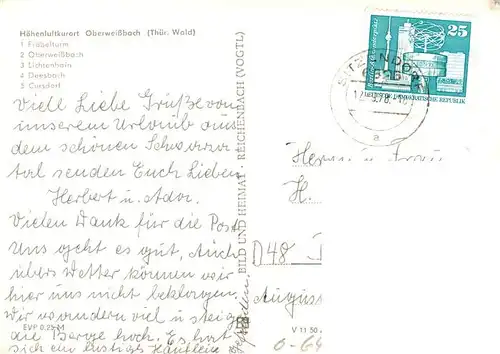 Höhenluftkurort Oberweißbach (Thür. Wald)
1 Fröbelturm
2 Oberweißbach
3 Lichtenhain
4 Deesbach
5 Cursdorf
Viele Liebe Grüße von
unserem Urlaub aus
dem schönen Schwarza
tal senden Euch Lieben
Herbert u.
Vielen Dank für die Post
Uns geht es gut, Auch
übers Wetter können wir
hier uns nicht beklagen.
Wir wandern viel u steigen
die Berge hoch. Es hat
sich ein lustiges Häuflein
gefunden.
EVP 0,25 M
BILD UND HEIMAT · REICHENBACH (VOGTL)
V 11 50
25
SITZENDORF
a
Herrn u. Frau
H.
D48
August
0-64